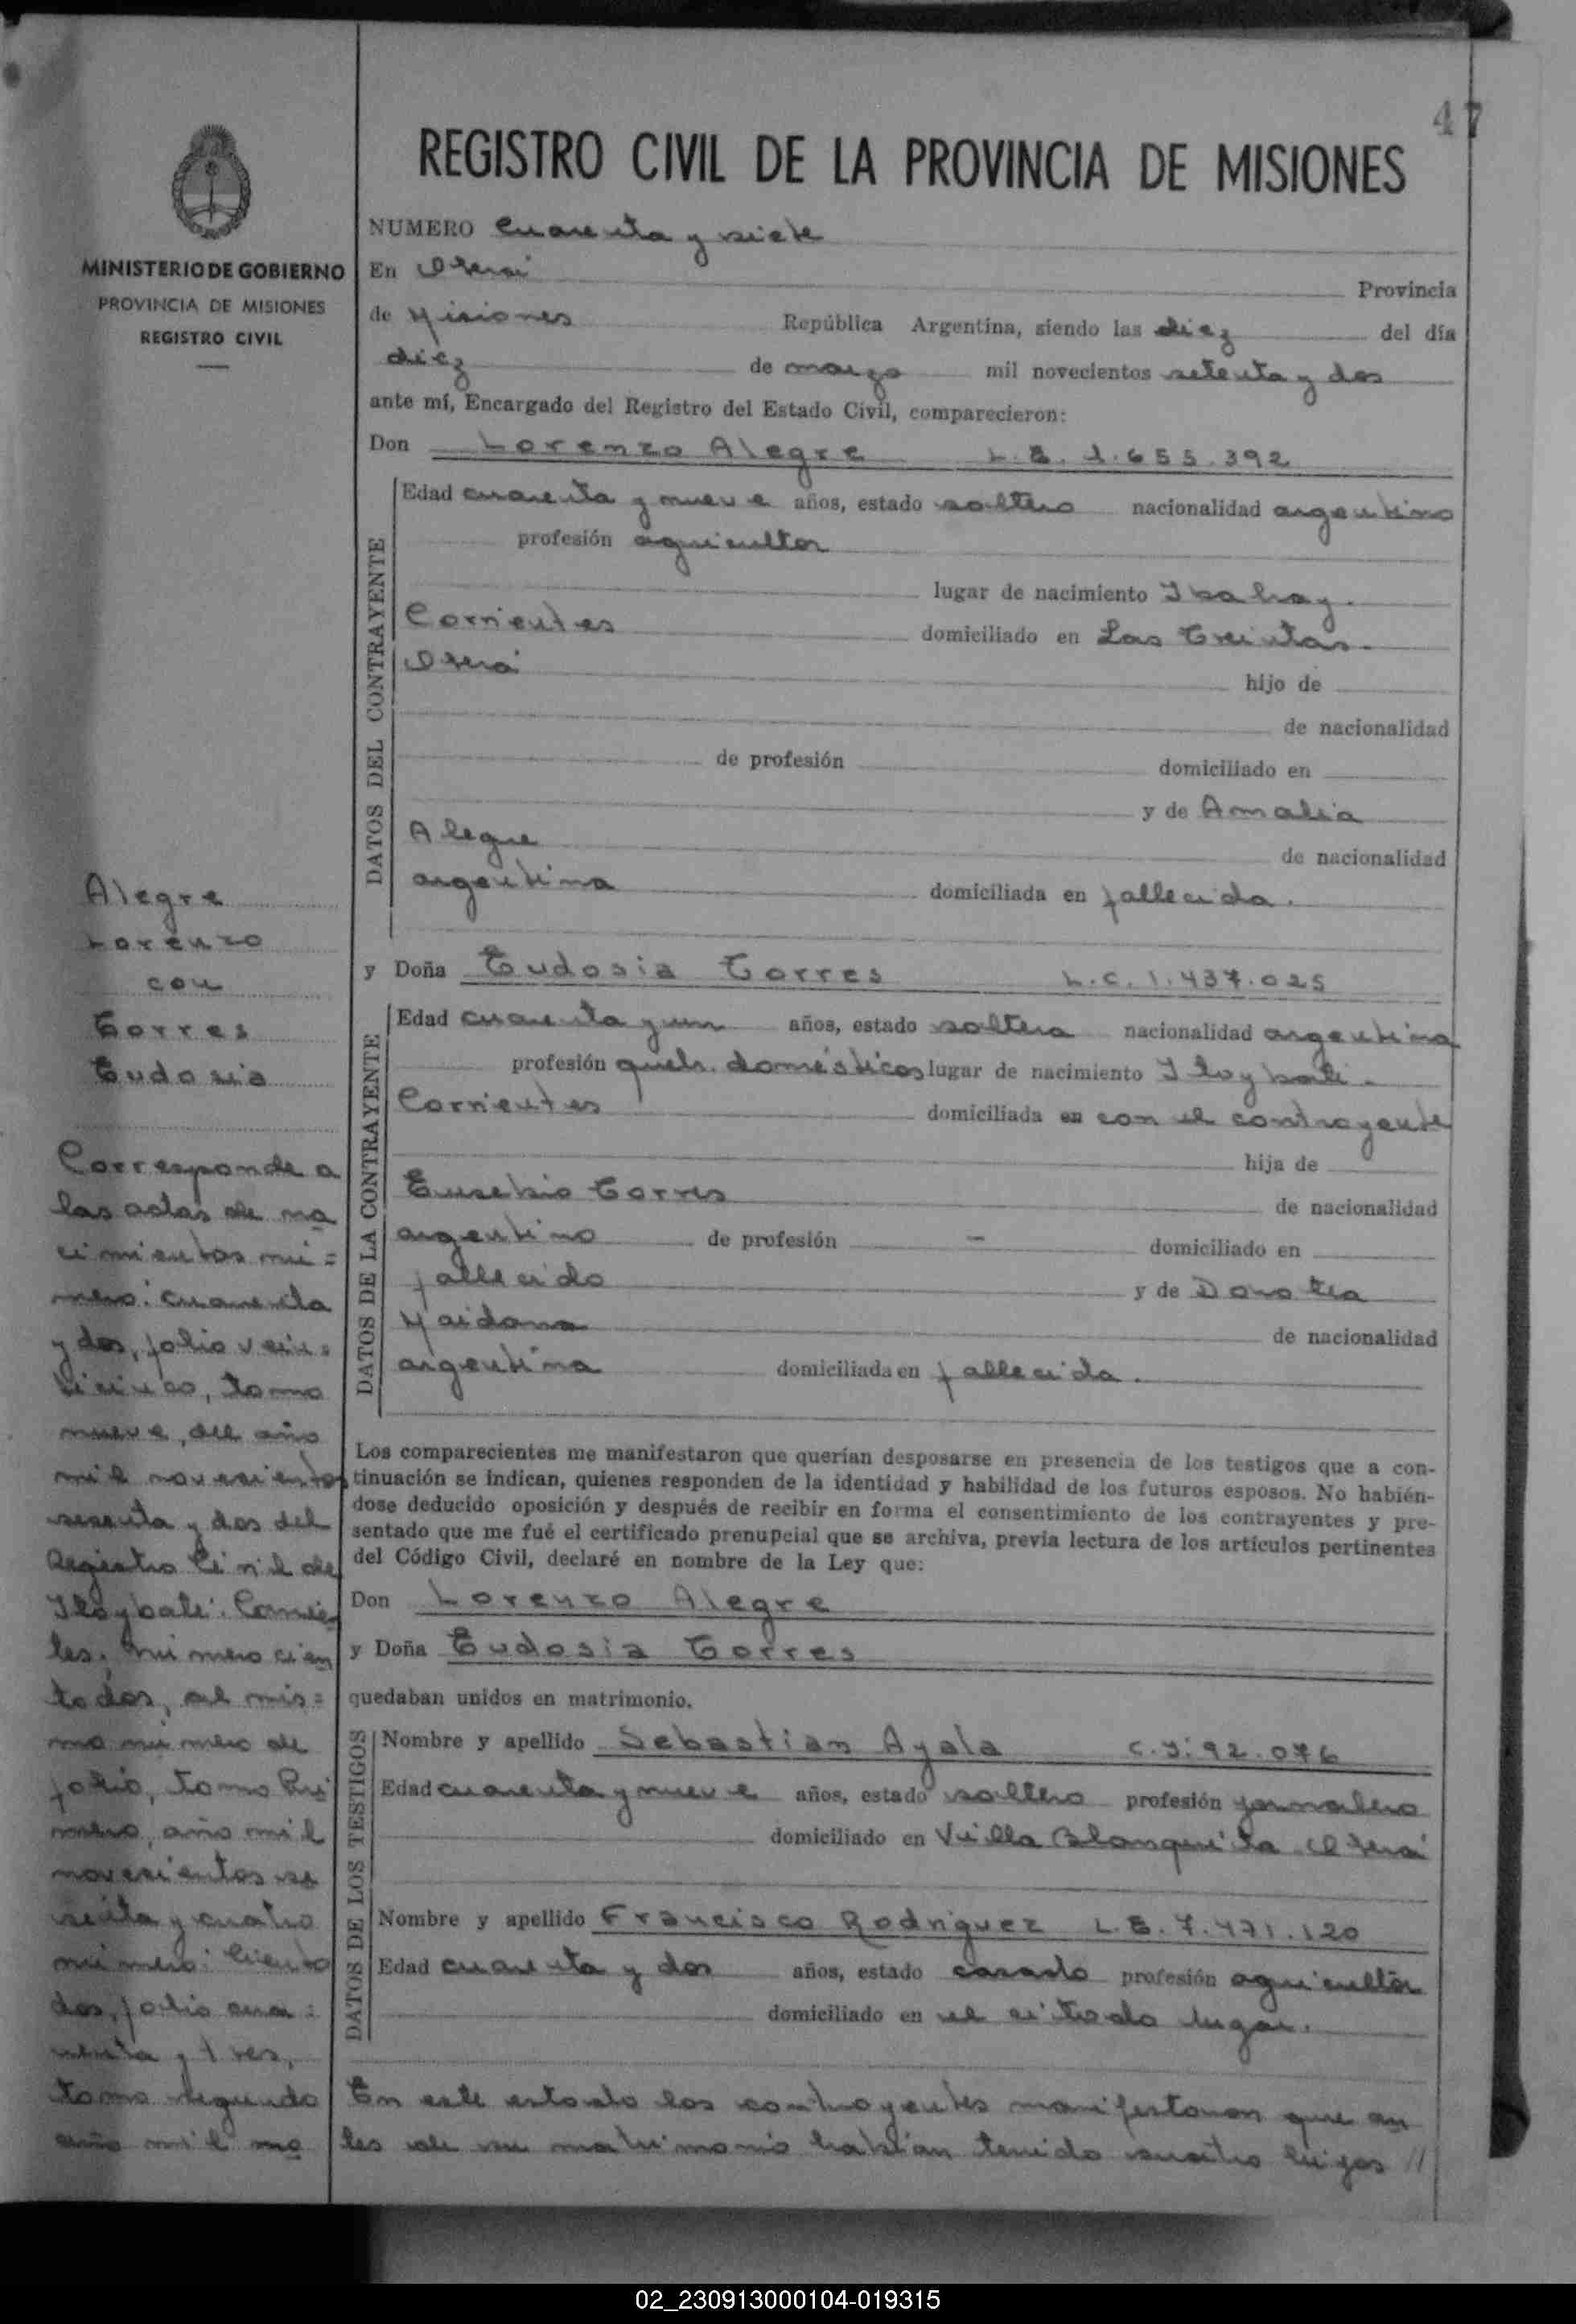 47
REGISTRO CIVIL DE LA PROVINCIA DE MISIONES
MINISTERIO DE GOBIERNO
PROVINCIA DE MISIONES
REGISTRO CIVIL
NUMERO Cuarenta y siete
En Oberá Provincia
de Misiones República Argentina, siendo las diez del día
diez de marzo mil novecientos setenta y dos
ante mí, Encargado del Registro del Estado Civil, comparecieron:
Don Lorenzo Alegre L.E. 1.655.392
DATOS DEL CONTRAYENTE
Edad cuarenta y nueve años, estado soltero nacionalidad argentino
profesión agricultor
lugar de nacimiento Ibahay.
Corrientes domiciliado en Las Treintas.
Oberá
hijo de
de nacionalidad
de profesión domiciliado en
y de Amalia
Alegre de nacionalidad
argentina domiciliada en fallecida.
y Doña Eudosia Torres L.C. 1.437.025
DATOS DE LA CONTRAYENTE
Edad cuarenta y un años, estado soltera nacionalidad argentina
profesión queh. domésticos lugar de nacimiento Itaybaté.
Corrientes domiciliada en con el contrayente
hija de
Eusebio Torres de nacionalidad
argentino de profesión - domiciliado en
fallecido y de Dorotea
Maidana de nacionalidad
argentina domiciliada en fallecida.
Los comparecientes me manifestaron que querían desposarse en presencia de los testigos que a con-
tinuación se indican, quienes responden de la identidad y habilidad de los futuros esposos. No habién-
dose deducido oposición y después de recibir en forma el consentimiento de los contrayentes y pre-
sentado que me fué el certificado prenupcial que se archiva, previa lectura de los artículos pertinentes
del Código Civil, declaré en nombre de la Ley que:
Don Lorenzo Alegre
y Doña Eudosia Torres
quedaban unidos en matrimonio.
DATOS DE LOS TESTIGOS
Nombre y apellido Sebastian Ayala C.I: 92.076
Edad cuarenta y nueve años, estado soltero profesión jornalero
domiciliado en Villa Blanquita Oberá
Nombre y apellido Francisco Rodriguez L.E. 7.471.120
Edad cuarenta y dos años, estado casado profesión agricultor
domiciliado en el citado lugar.
En este estado los contrayentes manifestaron que an
tes de su matrimonio habían tenido cuatro hijos //
Alegre
Lorenzo
con
Torres
Eudosia
Corresponde a
las actas de na
cimientos nú=
mero: cuarenta
y dos, folio vein=
ticinco, tomo
nueve, del año
mil novecientos
sesenta y dos del
Registro Civil de
Itaybaté. Corrien
tes. número cien
to dos, al mis=
mo número de
folio, tomo pri
mero, año mil
novecientos se
senta y cuatro
número: ciento
dos, folio cua=
renta y tres,
tomo segundo
año mil no
02_230913000104-019315